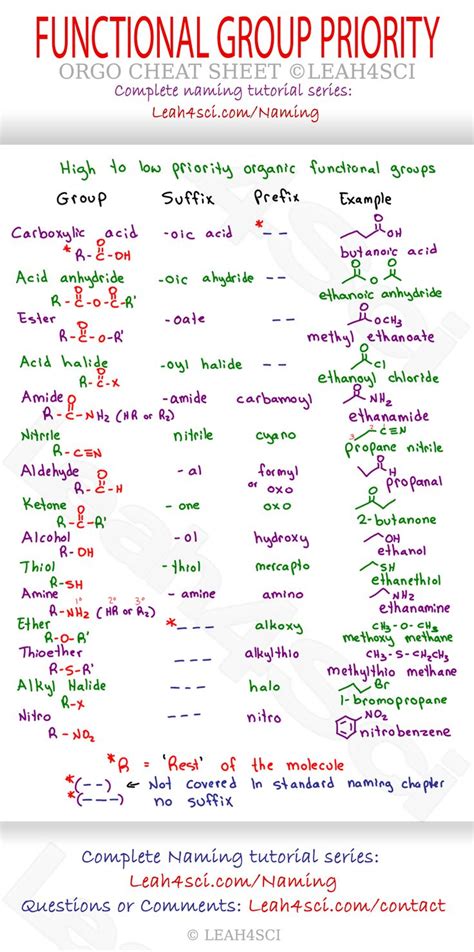 FUNCTIONAL GROUP PRIORITY
ORGO CHEAT SHEET ©LEAH4SCI
Complete naming tutorial series:
Leah4sci.com/Naming
High to low priority organic functional groups
Group Suffix Prefix Example
Carboxylic acid -oic acid *-- OH
*R-C-OH O butanoic acid
Acid anhydride -oic ahydride -- O O O
R-C-O-C-R O O ethanoic anhydride
Ester -oate -- O OCH3
R-C-O-R' O methyl ethanoate
Acid halide -oyl halide -- O Cl
R-C-X O ethanoyl chloride
Amide -amide carbamoyl O NH2
R-C-NH2 (HR or R2) O ethanamide
Nitrile nitrile cyano 3 2 1 C≡N
R-C≡N propane nitrile
Aldehyde -al formyl or oxo O H
R-C-H O propanal
Ketone -one oxo O
R-C-R' O 2-butanone
Alcohol -ol hydroxy OH
R-OH ethanol
Thiol -thiol mercapto SH
R-SH ethanethiol
Amine -amine amino NH2
R-NH2 (HR or R2) 1° 2° 3° ethanamine
Ether *--- alkoxy CH3-O-CH3
R-O-R' methoxy methane
Thioether --- alkylthio CH3-S-CH2CH3
R-S-R' methylthio methane
Alkyl Halide --- halo Br
R-X 1-bromopropane
Nitro --- nitro NO2
R-NO2 nitrobenzene
*R = 'Rest' of the molecule
*(--) ← Not covered in standard naming chapter
*(---) no suffix
Complete Naming tutorial series:
Leah4sci.com/Naming
Questions or Comments: Leah4sci.com/contact
© LEAH4SCI